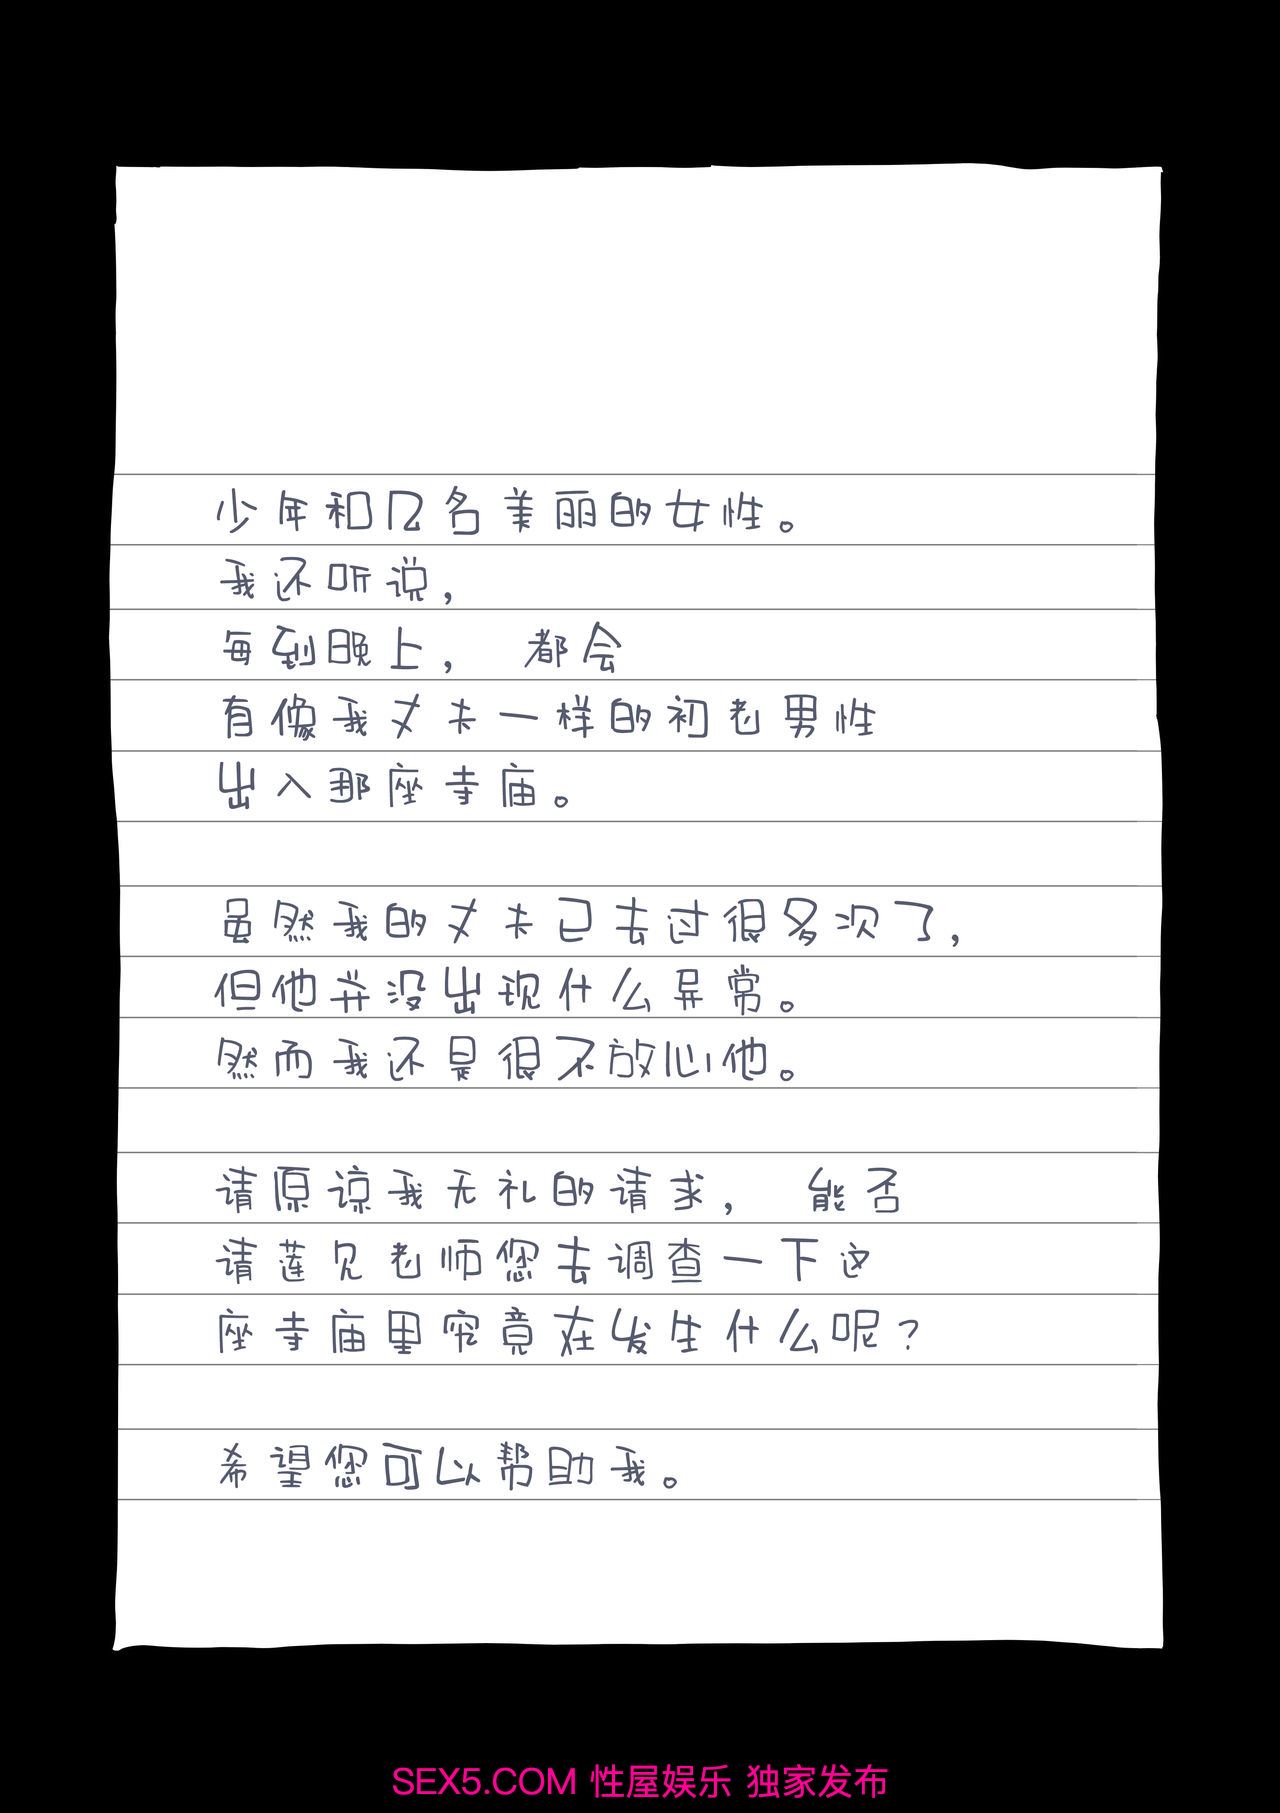 少年和几名美丽的女性。
我还听说，
每到晚上， 都会
有像我丈夫一样的初老男性
出入那座寺庙。
虽然我的丈夫已去过很多次了，
但他并没出现什么异常。
然而我还是很不放心他。
请原谅我无礼的请求， 能否
请莲见老师您去调查一下这
座寺庙里究竟在发生什么呢？
希望您可以帮助我。
SEX5.COM 性屋娱乐 独家发布